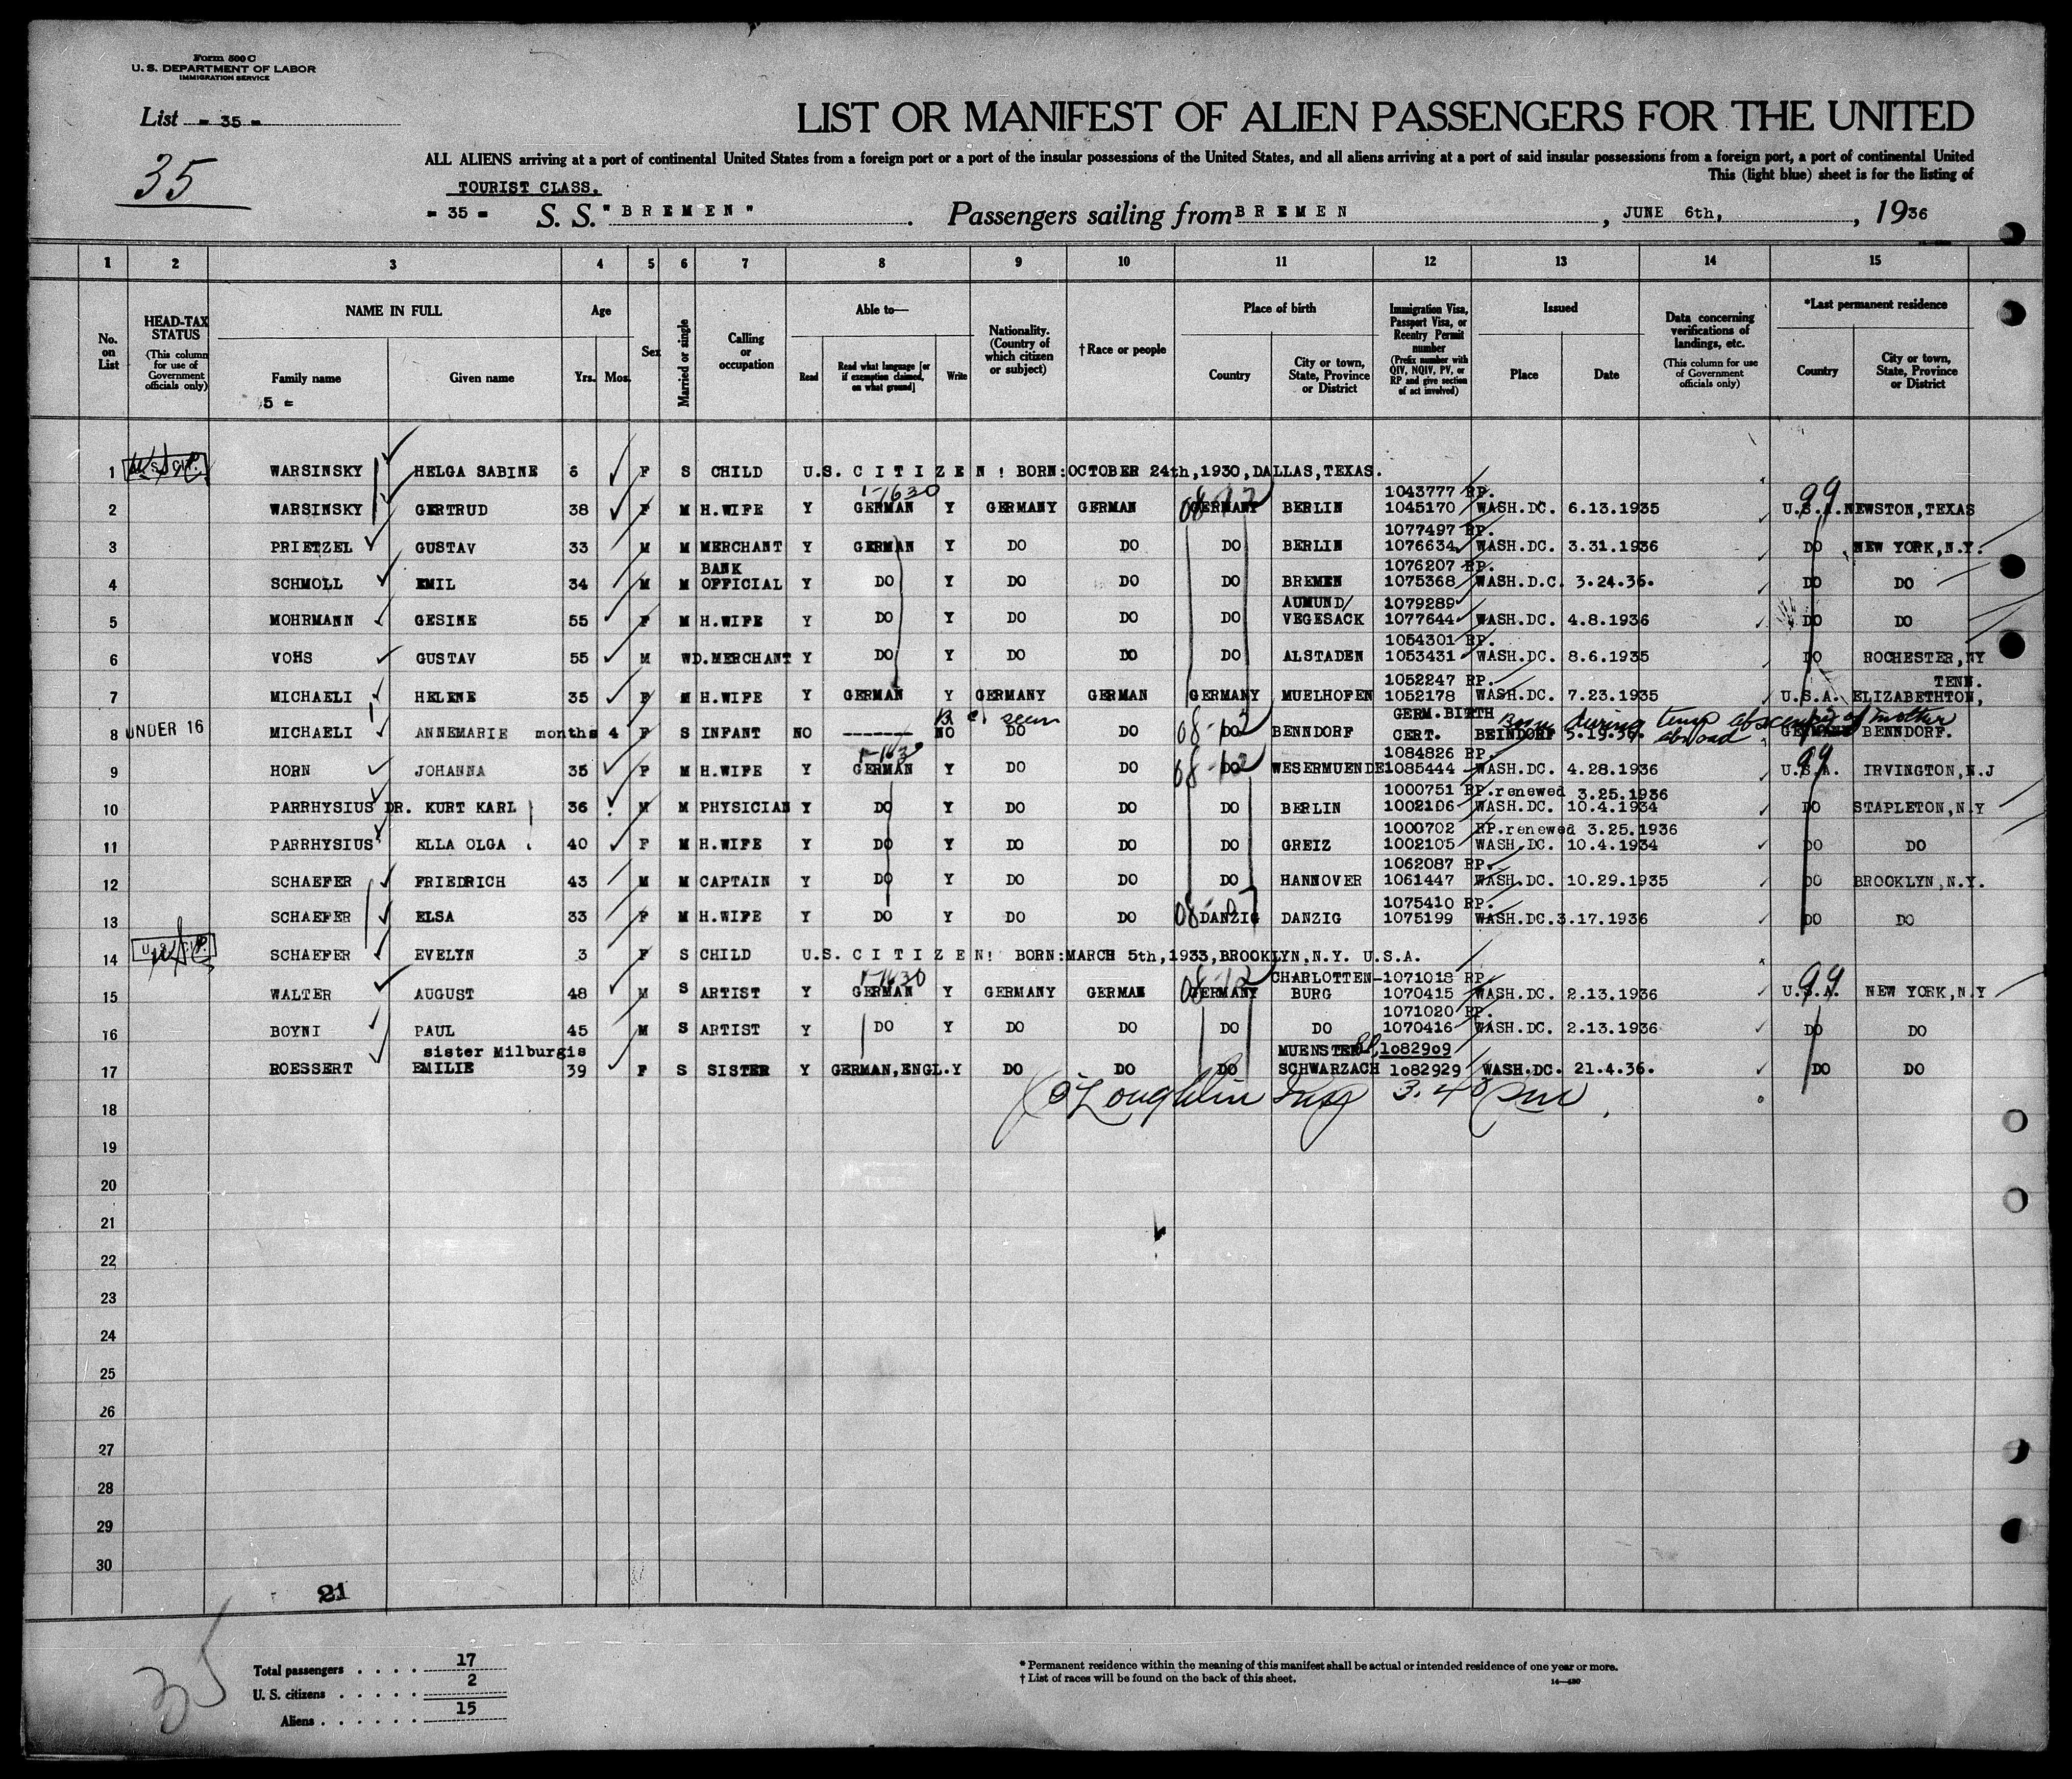 Form 500 C
U. S. DEPARTMENT OF LABOR
IMMIGRATION SERVICE
List - 35 -
35
LIST OR MANIFEST OF ALIEN PASSENGERS FOR THE UNITED
ALL ALIENS arriving at a port of continental United States from a foreign port or a port of the insular possessions of the United States, and all aliens arriving at a port of said insular possessions from a foreign port, a port of continental United
This (light blue) sheet is for the listing of
TOURIST CLASS.
= 35 = S. S. "BREMEN". Passengers sailing from BREMEN, JUNE 6th, , 1936
1 2 3 4 5 6 7 8 9 10 11 12 13 14 15
No. on List
HEAD-TAX STATUS (This column for use of Government officials only)
NAME IN FULL Family name Given name
5 =
Age Yrs. Mos.
Sex
Married or single
Calling or occupation
Able to— Read Read what language [or if exemption claimed, on what ground] Write
Nationality. (Country of which citizen or subject)
† Race or people
Place of birth Country City or town, State, Province or District
Immigration Visa, Passport Visa, or Reentry Permit number (Prefix number with QIV, NQIV, PV, or RP and give section of act involved)
Issued Place Date
Data concerning verifications of landings, etc. (This column for use of Government officials only)
*Last permanent residence Country City or town, State, Province or District
1 U.S. CIT. WARSINSKY HELGA SABINE 6 F S CHILD U.S. CITIZEN! BORN:OCTOBER 24th,1930,DALLAS,TEXAS.
1-1630 08-12 1043777 RP. 99
2 WARSINSKY GERTRUD 38 F M H.WIFE Y GERMAN Y GERMANY GERMAN GERMANY BERLIN 1045170 WASH.DC. 6.13.1935 U.S.A. NEWSTON,TEXAS
1077497 RP.
3 PRIETZEL GUSTAV 33 M M MERCHANT Y GERMAN Y DO DO DO BERLIN 1076634 WASH.DC. 3.31.1936 DO NEW YORK,N.Y.
BANK 1076207 RP.
4 SCHMOLL EMIL 34 M M OFFICIAL Y DO Y DO DO DO BREMEN 1075368 WASH.D.C. 3.24.36. DO DO
AUMUND/ 1079289
5 MOHRMANN GESINE 55 F M H.WIFE Y DO Y DO DO DO VEGESACK 1077644 WASH.DC. 4.8.1936 DO DO
1054301 RP.
6 VOHS GUSTAV 55 M WD. MERCHANT Y DO Y DO DO DO ALSTADEN 1053431 WASH.DC. 8.6.1935 DO ROCHESTER,NY
1052247 RP. TENN.
7 MICHAELI HELENE 35 F M H.WIFE Y GERMAN Y GERMANY GERMAN GERMANY MUELHOFEN 1052178 WASH.DC. 7.23.1935 U.S.A. ELIZABETHTON,
B c seen 08-12 GERM.BIRTH Born during temp absence of mother abroad
8 UNDER 16 MICHAELI ANNEMARIE months 4 F S INFANT NO ------- NO DO DO DO BENNDORF CERT. BEINDORF 5.19.36. GERMANY BENNDORF.
1-1630 08-12 1084826 RP. 99
9 HORN JOHANNA 35 F M H.WIFE Y GERMAN Y DO DO DO WESERMUENDE 1085444 WASH.DC. 4.28.1936 U.S.A. IRVINGTON,N.J
1000751 RP.renewed 3.25.1936
10 PARRHYSIUS DR. KURT KARL 36 M M PHYSICIAN Y DO Y DO DO DO BERLIN 1002106 WASH.DC. 10.4.1934 DO STAPLETON,N.Y
1000702 RP.renewed 3.25.1936
11 PARRHYSIUS ELLA OLGA 40 F M H.WIFE Y DO Y DO DO DO GREIZ 1002105 WASH.DC. 10.4.1934 DO DO
1062087 RP.
12 SCHAEFER FRIEDRICH 43 M M CAPTAIN Y DO Y DO DO DO HANNOVER 1061447 WASH.DC. 10.29.1935 DO BROOKLYN,N.Y.
1075410 RP.
13 SCHAEFER ELSA 33 F M H.WIFE Y DO Y DO DO DANZIG DANZIG 1075199 WASH.DC. 3.17.1936 DO DO
14 U.S. CIT. SCHAEFER EVELYN 3 F S CHILD U.S. CITIZEN! BORN:MARCH 5th,1933,BROOKLYN,N.Y. U.S.A.
1-1630 08-12 CHARLOTTEN- 1071018 RP. 99
15 WALTER AUGUST 48 M S ARTIST Y GERMAN Y GERMANY GERMAN GERMANY BURG 1070415 WASH.DC. 2.13.1936 U.S.A. NEW YORK,N.Y
1071020 RP.
16 BOYNI PAUL 45 M S ARTIST Y DO Y DO DO DO DO 1070416 WASH.DC. 2.13.1936 DO DO
sister Milburgis MUENSTER- RP. 1082909
17 ROESSERT EMILIE 39 F S SISTER Y GERMAN,ENGL. Y DO DO DO SCHWARZACH 1082929 WASH.DC. 21.4.36. DO DO
18 O'Loughlin Insp 3.40 pm
19
20
21
22
23
24
25
26
27
28
29
30
21
35
Total passengers . . . . 17
U. S. citizens . . . . . 2
Aliens . . . . . . 15
* Permanent residence within the meaning of this manifest shall be actual or intended residence of one year or more.
† List of races will be found on the back of this sheet.
14—430